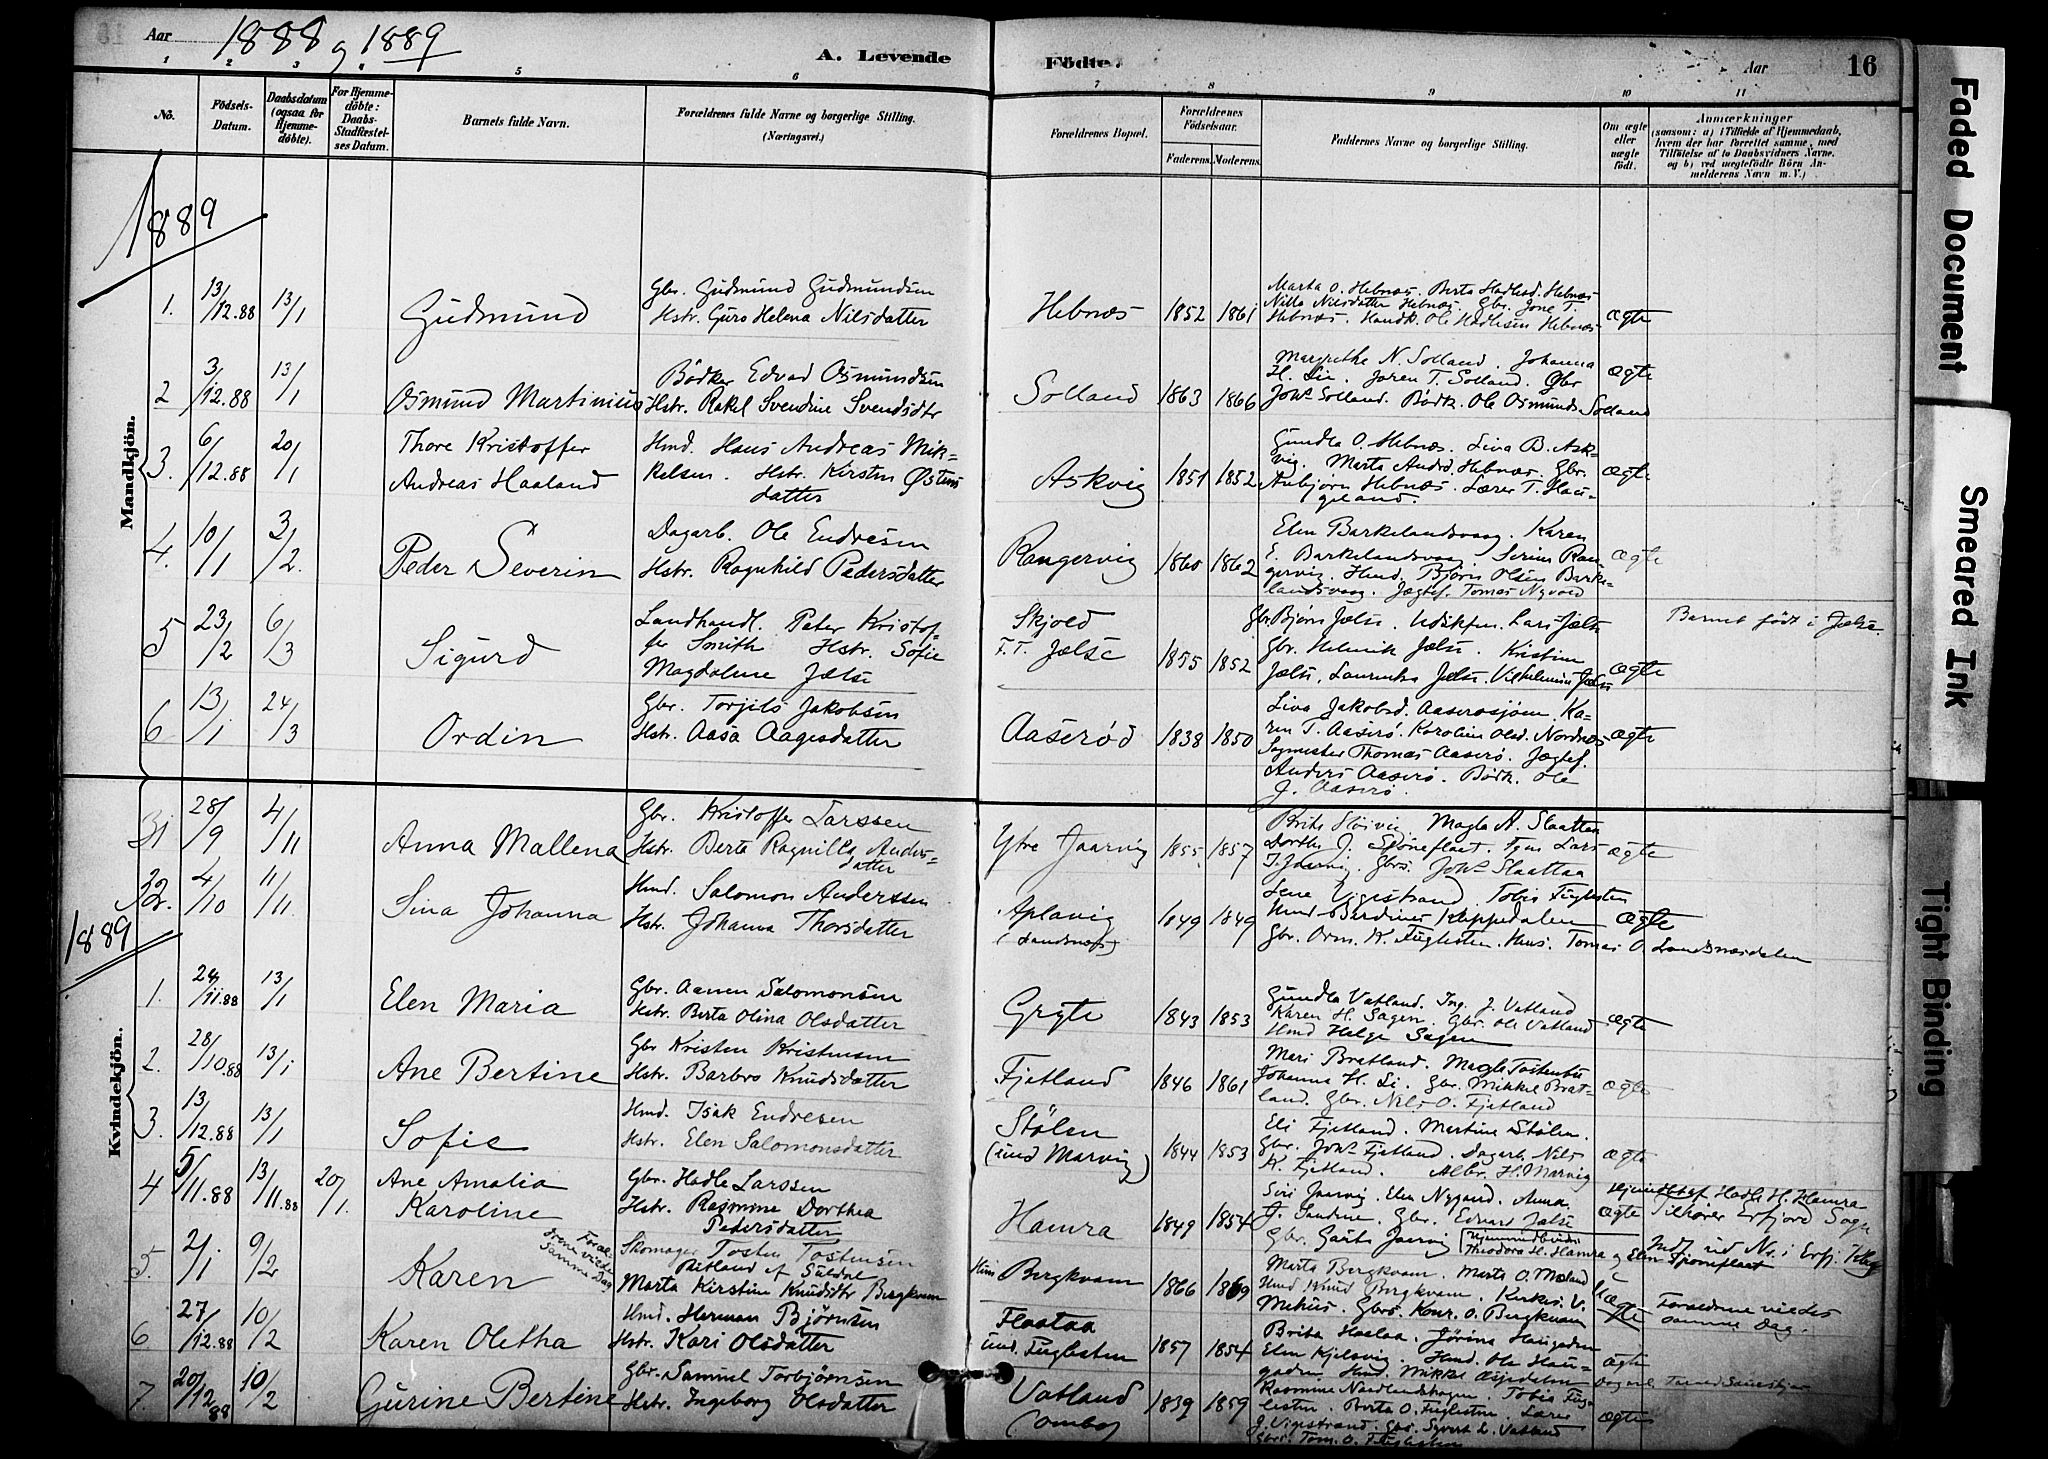 Aar 1888 og 1889
A. Levende Födte.
Aar 16
1 2 3 4 5 6 7 8 9 10 11
No.
Födsels-Datum.
Daabsdatum (ogsaa for Hjemme-döbte).
For Hjemme-döbte: Daabs-Stadfæstel-ses Datum.
Barnets fulde Navn.
Forældrenes fulde Navne og borgerlige Stilling. (Næringsvei.)
Forældrenes Bopæl.
Forældrenes Födselsaar.
Faderens. Moderens.
Faddernes Navne og borgerlige Stilling.
Om ægte eller uægte födt.
Anmærkninger
(saasom: a) i Tilfælde af Hjemmedaab, hvem der har forrettet samme, med Tilföielse af to Daabsvidners Navne, og b) ved uægtefödte Börn An-melderens Navn m. V.)
1889
Mandkjön.
1. 13/12.88 13/1 Gudmund
Gbr. Gudmund Gudmundsen
Hstr. Guro Helena Nilsdatter
Hebnæs 1852 1861
Marta O. Hebnæs. Berta Hadlad. Hebnæs
Nilla Nilsdatter Hebnæs. Gbr. Jone T.
Hebnæs. Handl. Ole Hadlesen Hebnæs
ægte
2 3/12.88 13/1 Osmund Martinius
Bödker Edvard Osmundsen
Hstr. Rakel Svendine Svendsdtr
Solland 1863 1866
Margrethe N. Solland. Johanna
H. Lie. Joren T. Solland. Gbr
Johs Solland. Bödk. Ole Osmunds. Solland
ægte
3. 6/12.88 20/1 Thore Kristoffer
Andreas Haaland
Hmd. Hans Andreas Mik-
kelsen. Hstr. Kirsten Østens
datter
Askvig 1851 1852
Gundla O. Hebnæs. Liva B. Ask-
vig. Marta Andrd. Hebnæs. Gbr.
Anbjörn Hebnæs. Lærer T. Hau-
geland.
ægte
4. 10/1 3/2. Peder Severin
Dagarb. Ole Endresen
Hstr. Ragnhild Pedersdatter
Rangervig 1860 1862
Elen Barkelandsvaag. Karen
E. Barkelandsvaag. Serine Ran-
gervig. Hmd. Björn Olsen Barke-
landsvaag. Jægtef. Tomas Nyvold
ægte
5 23/2 6/3 Sigurd
Landhandl. Peter Kristof-
fer Smith Hstr. Sofie
Magdalene Jælse
Skjold
F.T. Jælse 1855 1852
Gbr. Björn Jælse. Lars Jælse
Gbr. Helmik Jælse. Kristine
Jælse, Laurentse Jælse. Vilhelmine Jælse
ægte
Barnet födt i Jælse.
6 13/1 24/3 Ordin
Gbr. Torjils Jakobsen
Hstr. Aasa Aagesdatter
Aaseröd 1838 1850
Liva Jakobsd. Aaserösjøen. Ka-
ren T. Aaserö. Karoline Olsd. Nordnæs
Sagmester Thomas Aaserö. Jægtef.
Anders Aaserö. Bödk. Ole
J. Aaserö.
ægte
Kvindekjön.
31 28/9 4/11 Anna Mallena
Gbr. Kristoffer Larssen
Hstr. Berta Ragnilla Anders-
datter
Ytre Jaarvig 1855 1857
Magla A. Slaattaa
Dorthe J. Spöneflaat. Lars
Jaarvig. Gbr. Johs Slaattaa
ægte
32. 4/10 11/11 Sina Johanna
Hmd. Salomon Anderssen
Hstr. Johanna Thorsdatter
Aplavig
(Landsnæs) 1849 1849
Lene Vigestrand. Tobis Fuglesten
Hmd Bardinus Kleppedalen
Gbr. Orm. K. Fuglesten. Hus. Tomas O. Landsnæsdalen
ægte
1889
1. 24/11.88 13/1 Elen Maria
Gbr. Aanen Salomonsen
Hstr. Berta Olina Olsdatter
Gryte 1843 1853
Gundla Vatland. Ing. J. Vatland
Karen H. Sagen. Gbr. Ole Vatland
Hmd Helge Sagen
ægte
2. 28/10.88 13/1 Ane Bertine
Gbr Kristen Kristensen
Hstr. Barbro Knudsdatter
Fjetland 1846 1861
Mari Bratland. Magla
Johanna H. Li. Gbr. Mikkel Brat-
land. Gbr. Nils O. Fjetland
ægte
3. 13/12.88 13/1 Sofie
Hmd. Isak Endresen
Hstr. Elen Salomonsdatter
Stölen
(und Marvig) 1844 1853
Eli Fjetland. Martine Stölen.
Gbr. Johs Fjetland. Dagarb. Nils
K. Fjetland. Albr. H. Marvig
ægte
4 5/11.88 13/11.88 20/1. Ane Amalia
Karoline
Gbr. Hadle Larssen
Hstr. Rasmine Dorthea
Pedersdatter
Hamra 1849 1854
Siri Jaarvig. Elen Nygaard. Anna
J. Sandene. Gbr. Edvard Jælse
Gbr. Jaarvig
ægte
Hjemdöbt af Hadle H. Hamra
Tilhører Erfjord Sogn
Theodora H. Hamra og Elen Spöneflaat
5. 2/1 9/2 Karen
Foræl-
drene viede
samme Dag
Skomager Tosten Tostensen
Ritland af Suldal
Marta Kirstine Knudsdtr Bergkvam
Bergkvam 1866 1869
Marta Bergkvam. Marta O. Moland
Hmd Knud Bergkvam.
Mehus. Gbr. Konr. O. Bergkvam
Uægte
Forældrene viedes
samme Dag.
6 27/12.88 10/2 Karen Oletha
Hmd. Herman Björnsen
Hstr. Kari Olsdatter
Flaataa
und. Fuglesten 1857 1854
Brita Haslaa. Jörina Haugaden
Elen Kjölavig. Hmd. Ole Hau-
gaden. Hmd. Mikkel
ægte
7. 20/12 88 10/2 Gurine Bertine
Gbr. Samuel Torbjörnsen
Hstr. Ingeborg Olsdatter
Vatland
(Ombo) 1839 1859
Rasmine Tobia Fug-
lesten. Berta O. Fuglesten. Lærer
J. Vigestrand. Gbr. Sjvert L. Vatland
Gbr. Tom. O. Fuglesten
ægte
Faded Document
Smeared Ink
Tight Binding